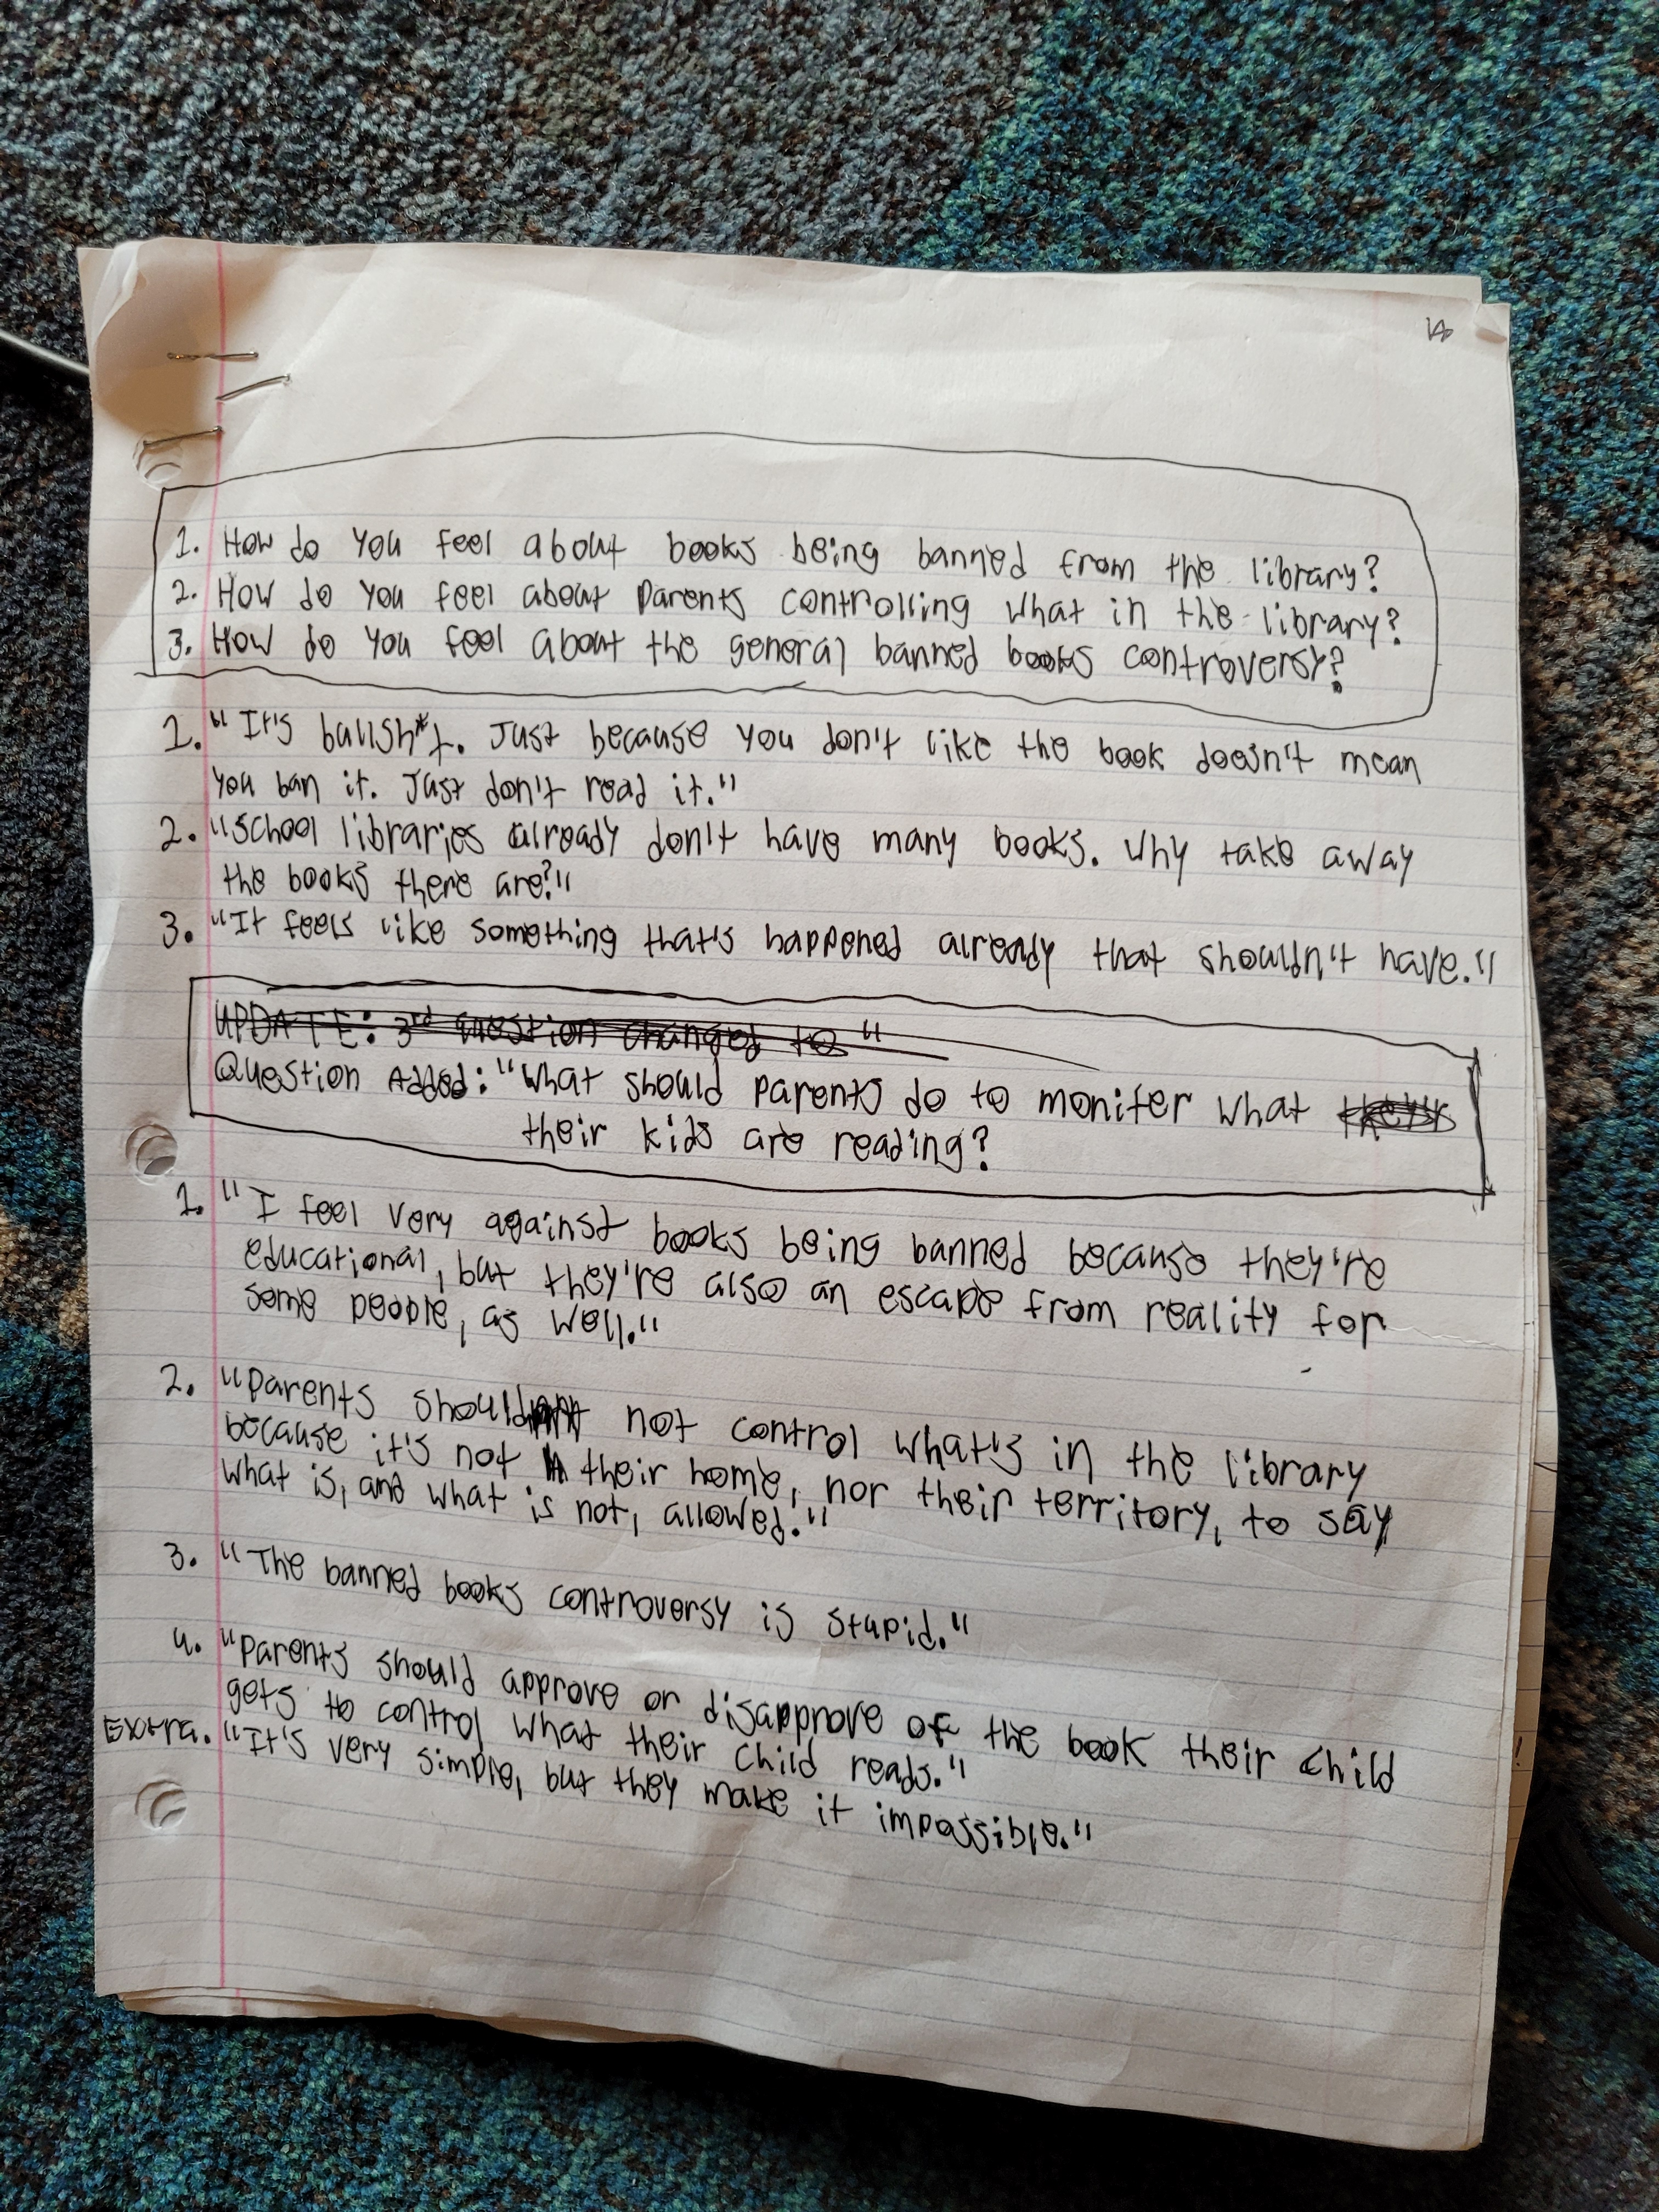 1. How do you feel about books being banned from the library?
2. How do you feel about parents controlling what in the library?
3. How do you feel about the general banned books controversy?
1. "It's bullsh*t. Just because you don't like the book doesn't mean
you ban it. Just don't read it."
2. "School libraries already don't have many books. Why take away
the books there are?"
3. "It feels like something that's happened already that shouldn't have."
UPDATE: 3rd question changed to "
Question Added: "What should parents do to moniter what
their kids are reading?
1. "I feel very against books being banned because they're
educational, but they're also an escape from reality for
some people, as well."
2. "Parents should not control what's in the library
because it's not their home, nor their territory, to say
what is, and what is not, allowed."
3. "The banned books controversy is stupid."
4. "Parents should approve or disapprove of the book their child
gets to control what their child reads."
Extra. "It's very simple, but they make it impossible."